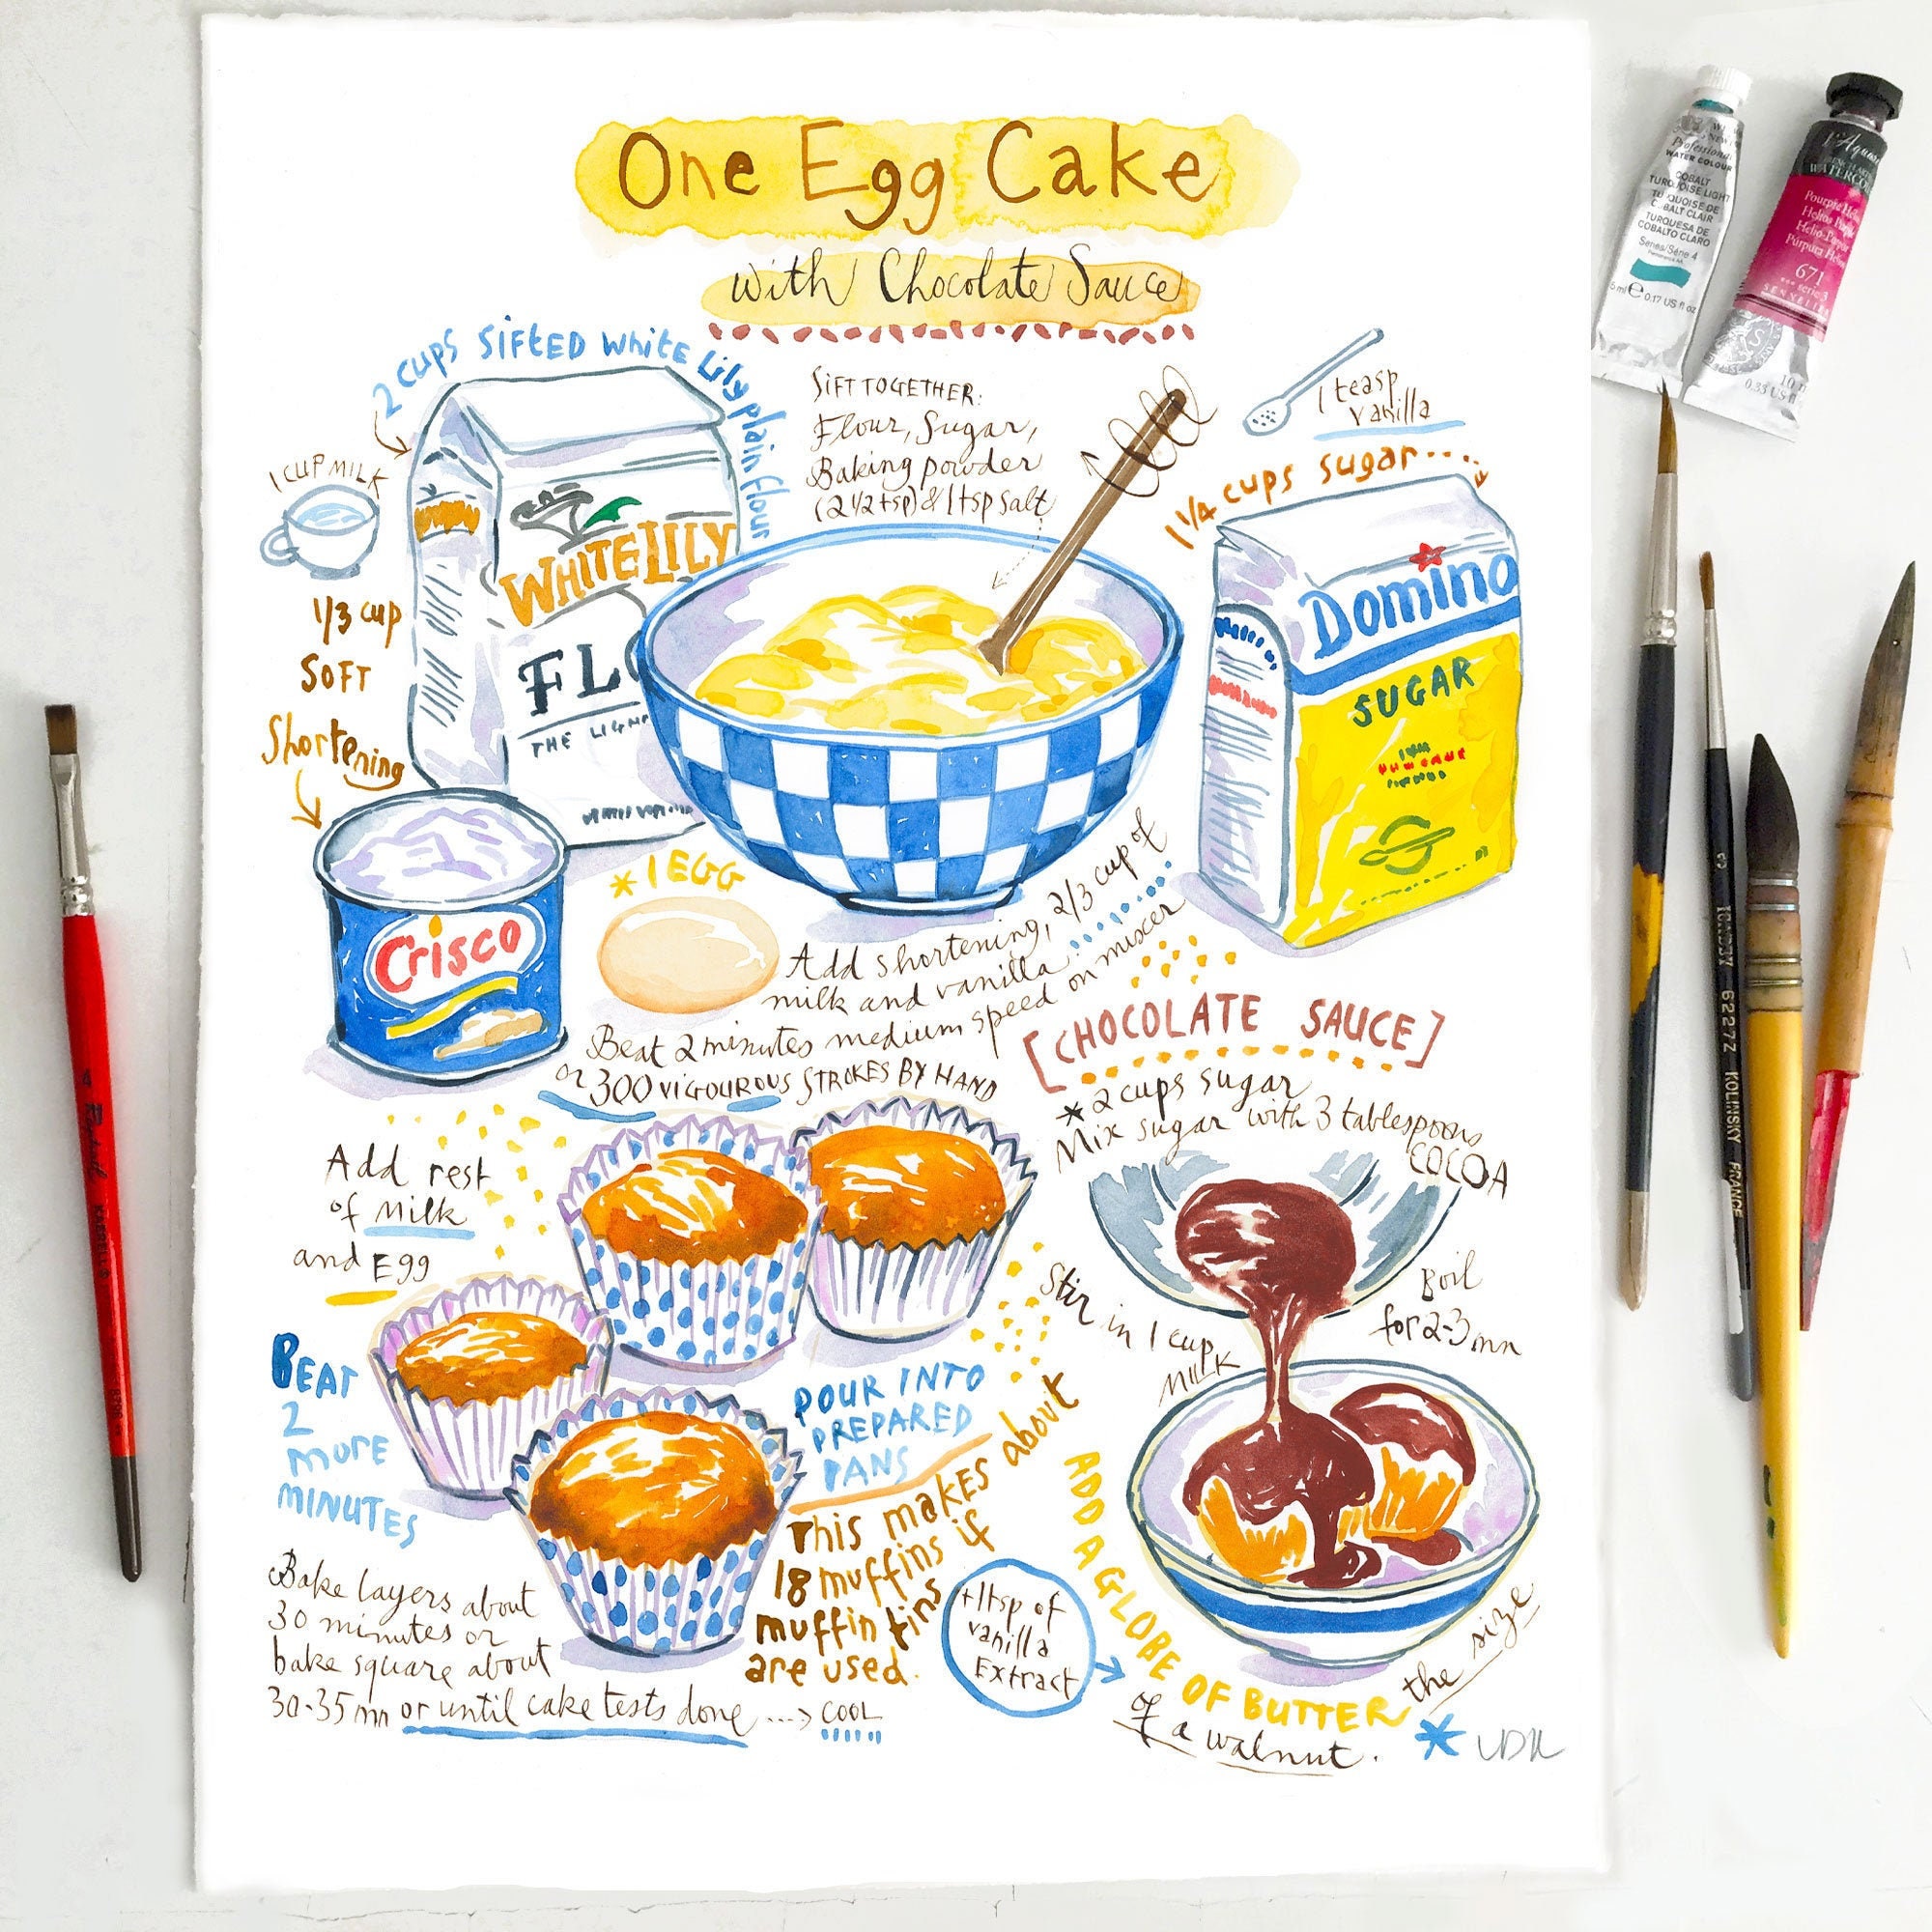 One Egg Cake
with Chocolate Sauce
2 cups SIFTED White Lily plain flour
1 CUP MILK
WHITE LILY
FLO
THE LIGH
SIFT TOGETHER:
Flour, Sugar,
Baking powder
(2 1/2 tsp) & 1 tsp salt
1 teasp
vanilla
1 1/4 cups sugar....
Domino
SUGAR
1/3 cup
SOFT
Shortening
Crisco
* 1 EGG
Add shortening, 2/3 cup of
milk and vanilla
Beat 2 minutes medium speed on mixer
or 300 VIGOUROUS STROKES BY HAND
Add rest
of Milk
and Egg
BEAT
2
more
MINUTES
POUR INTO
PREPARED
PANS
This makes about
18 muffins if
muffin tins
are used.
Bake layers about
30 minutes or
bake square about
30-35 mn or until cake tests done ...> COOL
[CHOCOLATE SAUCE]
* 2 cups sugar
Mix sugar with 3 tablespoons
COCOA
Stir in 1 cup
MILK
Boil
for 2-3 mn
+1tsp of
vanilla
Extract
ADD A GLOBE OF BUTTER the size
of a walnut.
Professional
WATER COLOUR
COBALT
TURQUOISE LIGHT
TURQUOISE DE
COBALT CLAIR
TURQUESA DE
COBALTO CLARO
Series/Série 4
5 ml e 0.17 US fl oz
671
série 3
Raphaël
KOLINSKY FRANCE